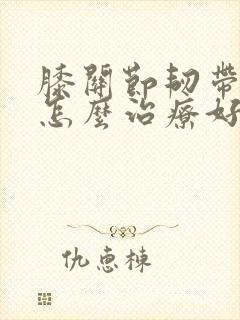 膝關節韌帶
怎麼治療好
仇惠棟